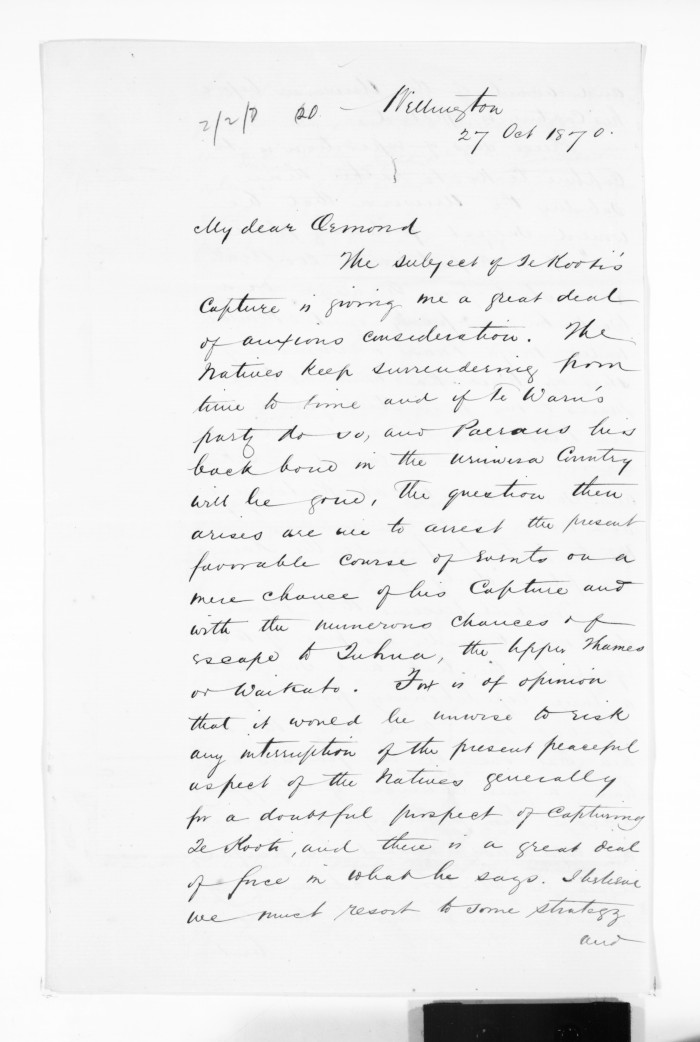 2/2/8 20 Wellington
27 Oct 1870.
My dear Ormond
The subject of Te Kooti's
Capture is giving me a great deal
of anxious consideration. The
Natives keep surrendering from
time to time and if Te Waru's
party do so, and Paeraus his
back bone in the Uriwera Country
will be gone, The question then
arises are we to arrest the present
favorable course of Events on a
mere chance of his Capture and
with the numerous chances of
escape to Tuhua, the Upper Thames
or Waikato. Fox is of opinion
that it would be unwise to risk
any interruption of the present peaceful
aspect of the Natives generally
for a doubtful prospect of Capturing
Te Kooti, and there is a great deal
of force in what he says. I believe
we must resort to some strategy
and